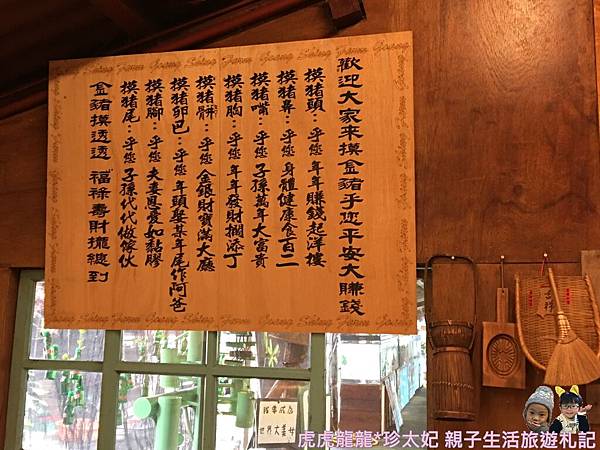 歡迎大家來摸金豬乎您平安大賺錢
摸豬頭:乎您 年年賺錢起洋樓
摸豬鼻:乎您 身體健康食百二
摸豬嘴:乎您 子孫萬年大富貴
摸豬胸:乎您 年年發財擱添丁
摸豬髀:乎您 金銀財寶滿大廳
摸豬卵巴:乎您 年頭娶某年尾作阿爸
摸豬腳:乎您 夫妻恩愛如黏膠
摸豬尾:乎您 子孫代代做傢伙
金豬摸透透 福祿壽財攏總到
吉祥
虎虎龍龍*珍太妃 親子生活旅遊札記